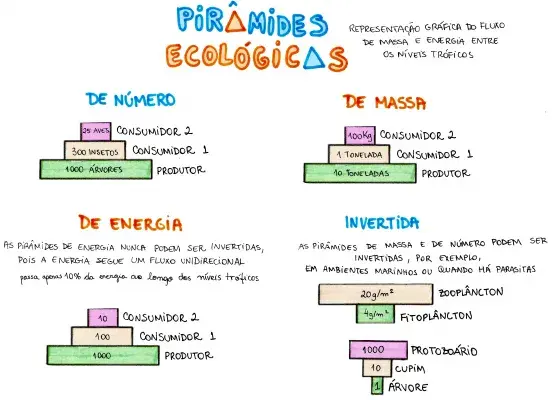 PIRÂMIDES
ECOLÓGICAS
REPRESENTAÇÃO GRÁFICA DO FLUXO
DE MASSA E ENERGIA ENTRE
OS NÍVEIS TRÓFICOS
DE NÚMERO
25 AVES CONSUMIDOR 2
300 INSETOS CONSUMIDOR 1
1000 ÁRVORES PRODUTOR
DE MASSA
100Kg CONSUMIDOR 2
1 TONELADA CONSUMIDOR 1
10 TONELADAS PRODUTOR
DE ENERGIA
AS PIRÂMIDES DE ENERGIA NUNCA PODEM SER INVERTIDAS,
POIS A ENERGIA SEGUE UM FLUXO UNIDIRECIONAL
passa apenas 10% da energia ao longo dos níveis tróficos
10 CONSUMIDOR 2
100 CONSUMIDOR 1
1000 PRODUTOR
INVERTIDA
AS PIRÂMIDES DE MASSA E DE NÚMERO PODEM SER
INVERTIDAS, POR EXEMPLO,
EM AMBIENTES MARINHOS OU QUANDO HÁ PARASITAS
20g/m² ZOOPLÂNCTON
4g/m² FITOPLÂNCTON
1000 PROTOZOÁRIO
10 CUPIM
1 ÁRVORE